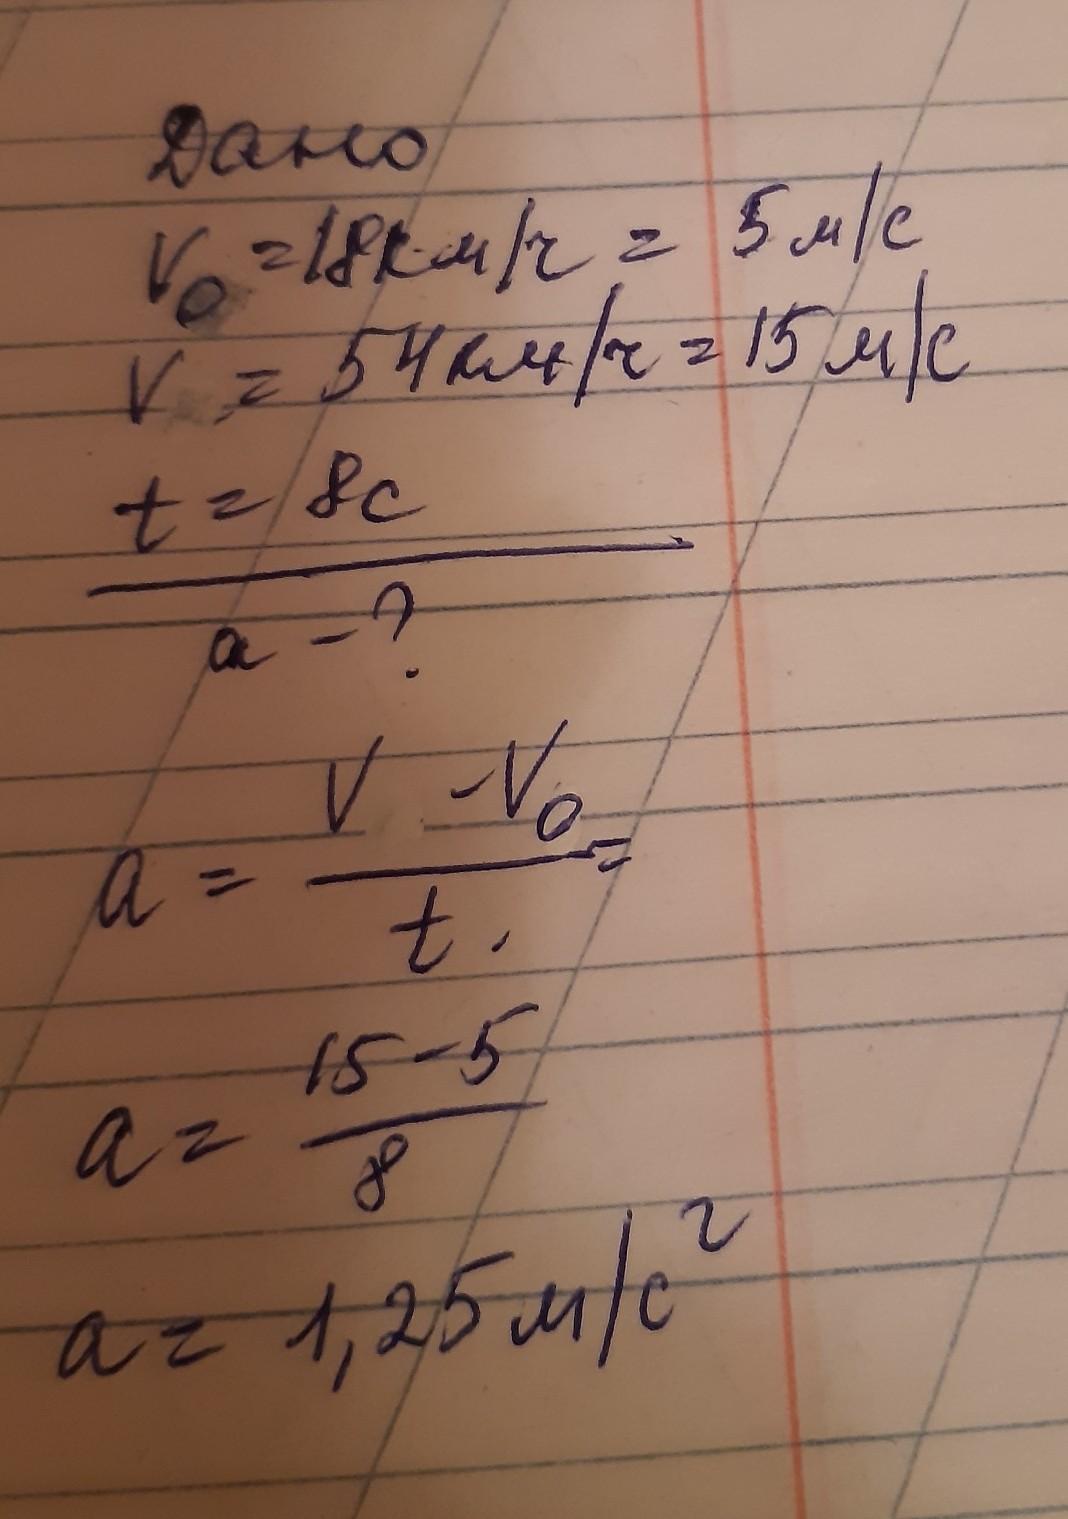 Дано
V₀ = 18км/ч = 5 м/с
V = 54км/ч = 15 м/с
t = 8с
a - ?
a = (V - V₀)/t =
a = (15 - 5)/8
a = 1,25 м/с²